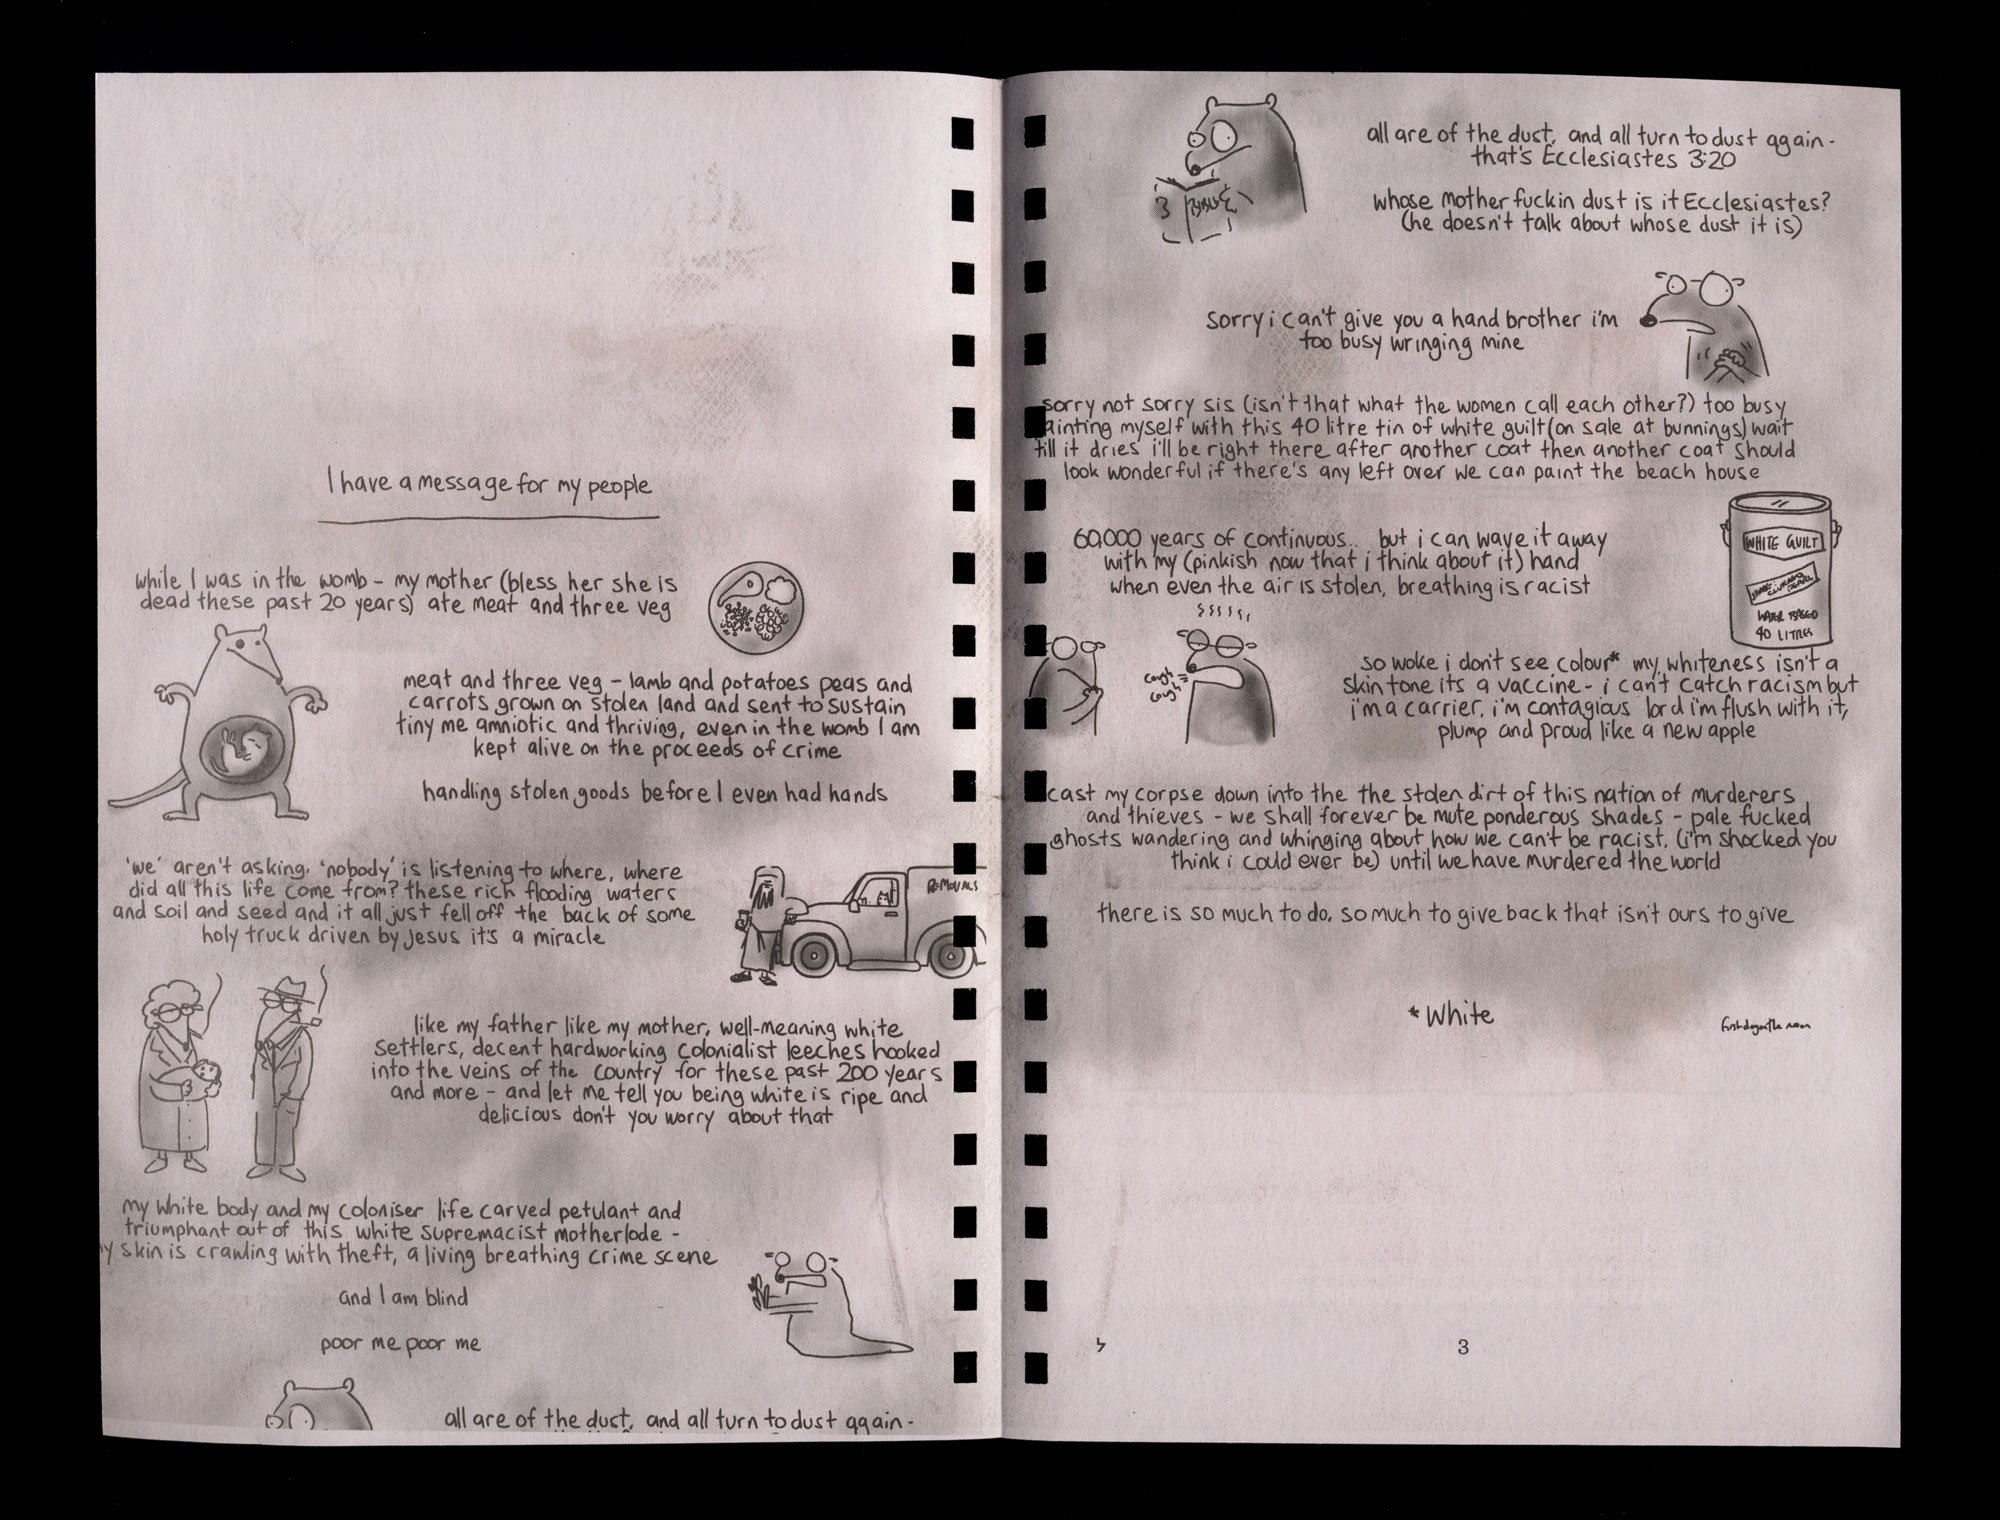 I have a message for my people
while I was in the womb - my mother (bless her she is
dead these past 20 years) ate meat and three veg
meat and three veg - lamb and potatoes peas and
carrots grown on stolen land and sent to sustain
tiny me amniotic and thriving, even in the womb I am
kept alive on the proceeds of crime
handling stolen goods before I even had hands
'we' aren't asking, 'nobody' is listening to where, where
did all this life come from? these rich flooding waters
and soil and seed and it all just fell off the back of some
holy truck driven by jesus it's a miracle
REMOVALS
like my father like my mother, well-meaning white
settlers, decent hardworking colonialist leeches hooked
into the veins of the country for these past 200 years
and more - and let me tell you being white is ripe and
delicious don't you worry about that
my white body and my coloniser life carved petulant and
triumphant out of this white supremacist motherlode -
y skin is crawling with theft, a living breathing crime scene
and I am blind
poor me poor me
all are of the dust, and all turn to dust again -
all are of the dust, and all turn to dust again -
that's Ecclesiastes 3:20
BIBLE
whose mother fuckin dust is it Ecclesiastes?
(he doesn't talk about whose dust it is)
sorry i can't give you a hand brother i'm
too busy wringing mine
sorry not sorry sis (isn't that what the women call each other?) too busy
ainting myself with this 40 litre tin of white guilt (on sale at bunnings) wait
till it dries i'll be right there after another coat then another coat should
look wonderful if there's any left over we can paint the beach house
60,000 years of continuous.. but i can wave it away
with my (pinkish now that i think about it) hand
when even the air is stolen, breathing is racist
WHITE GUILT
WATER BASED
40 LITRES
cough
cough
so woke i don't see colour* my whiteness isn't a
skin tone its a vaccine - i can't catch racism but
i'm a carrier, i'm contagious lord i'm flush with it,
plump and proud like a new apple
cast my corpse down into the the stolen dirt of this nation of murderers
and thieves - we shall forever be mute ponderous shades - pale fucked
ghosts wandering and whinging about how we can't be racist, (i'm shocked you
think i could ever be) until we have murdered the world
there is so much to do, so much to give back that isn't ours to give
*White
firstdogonthe moon
3